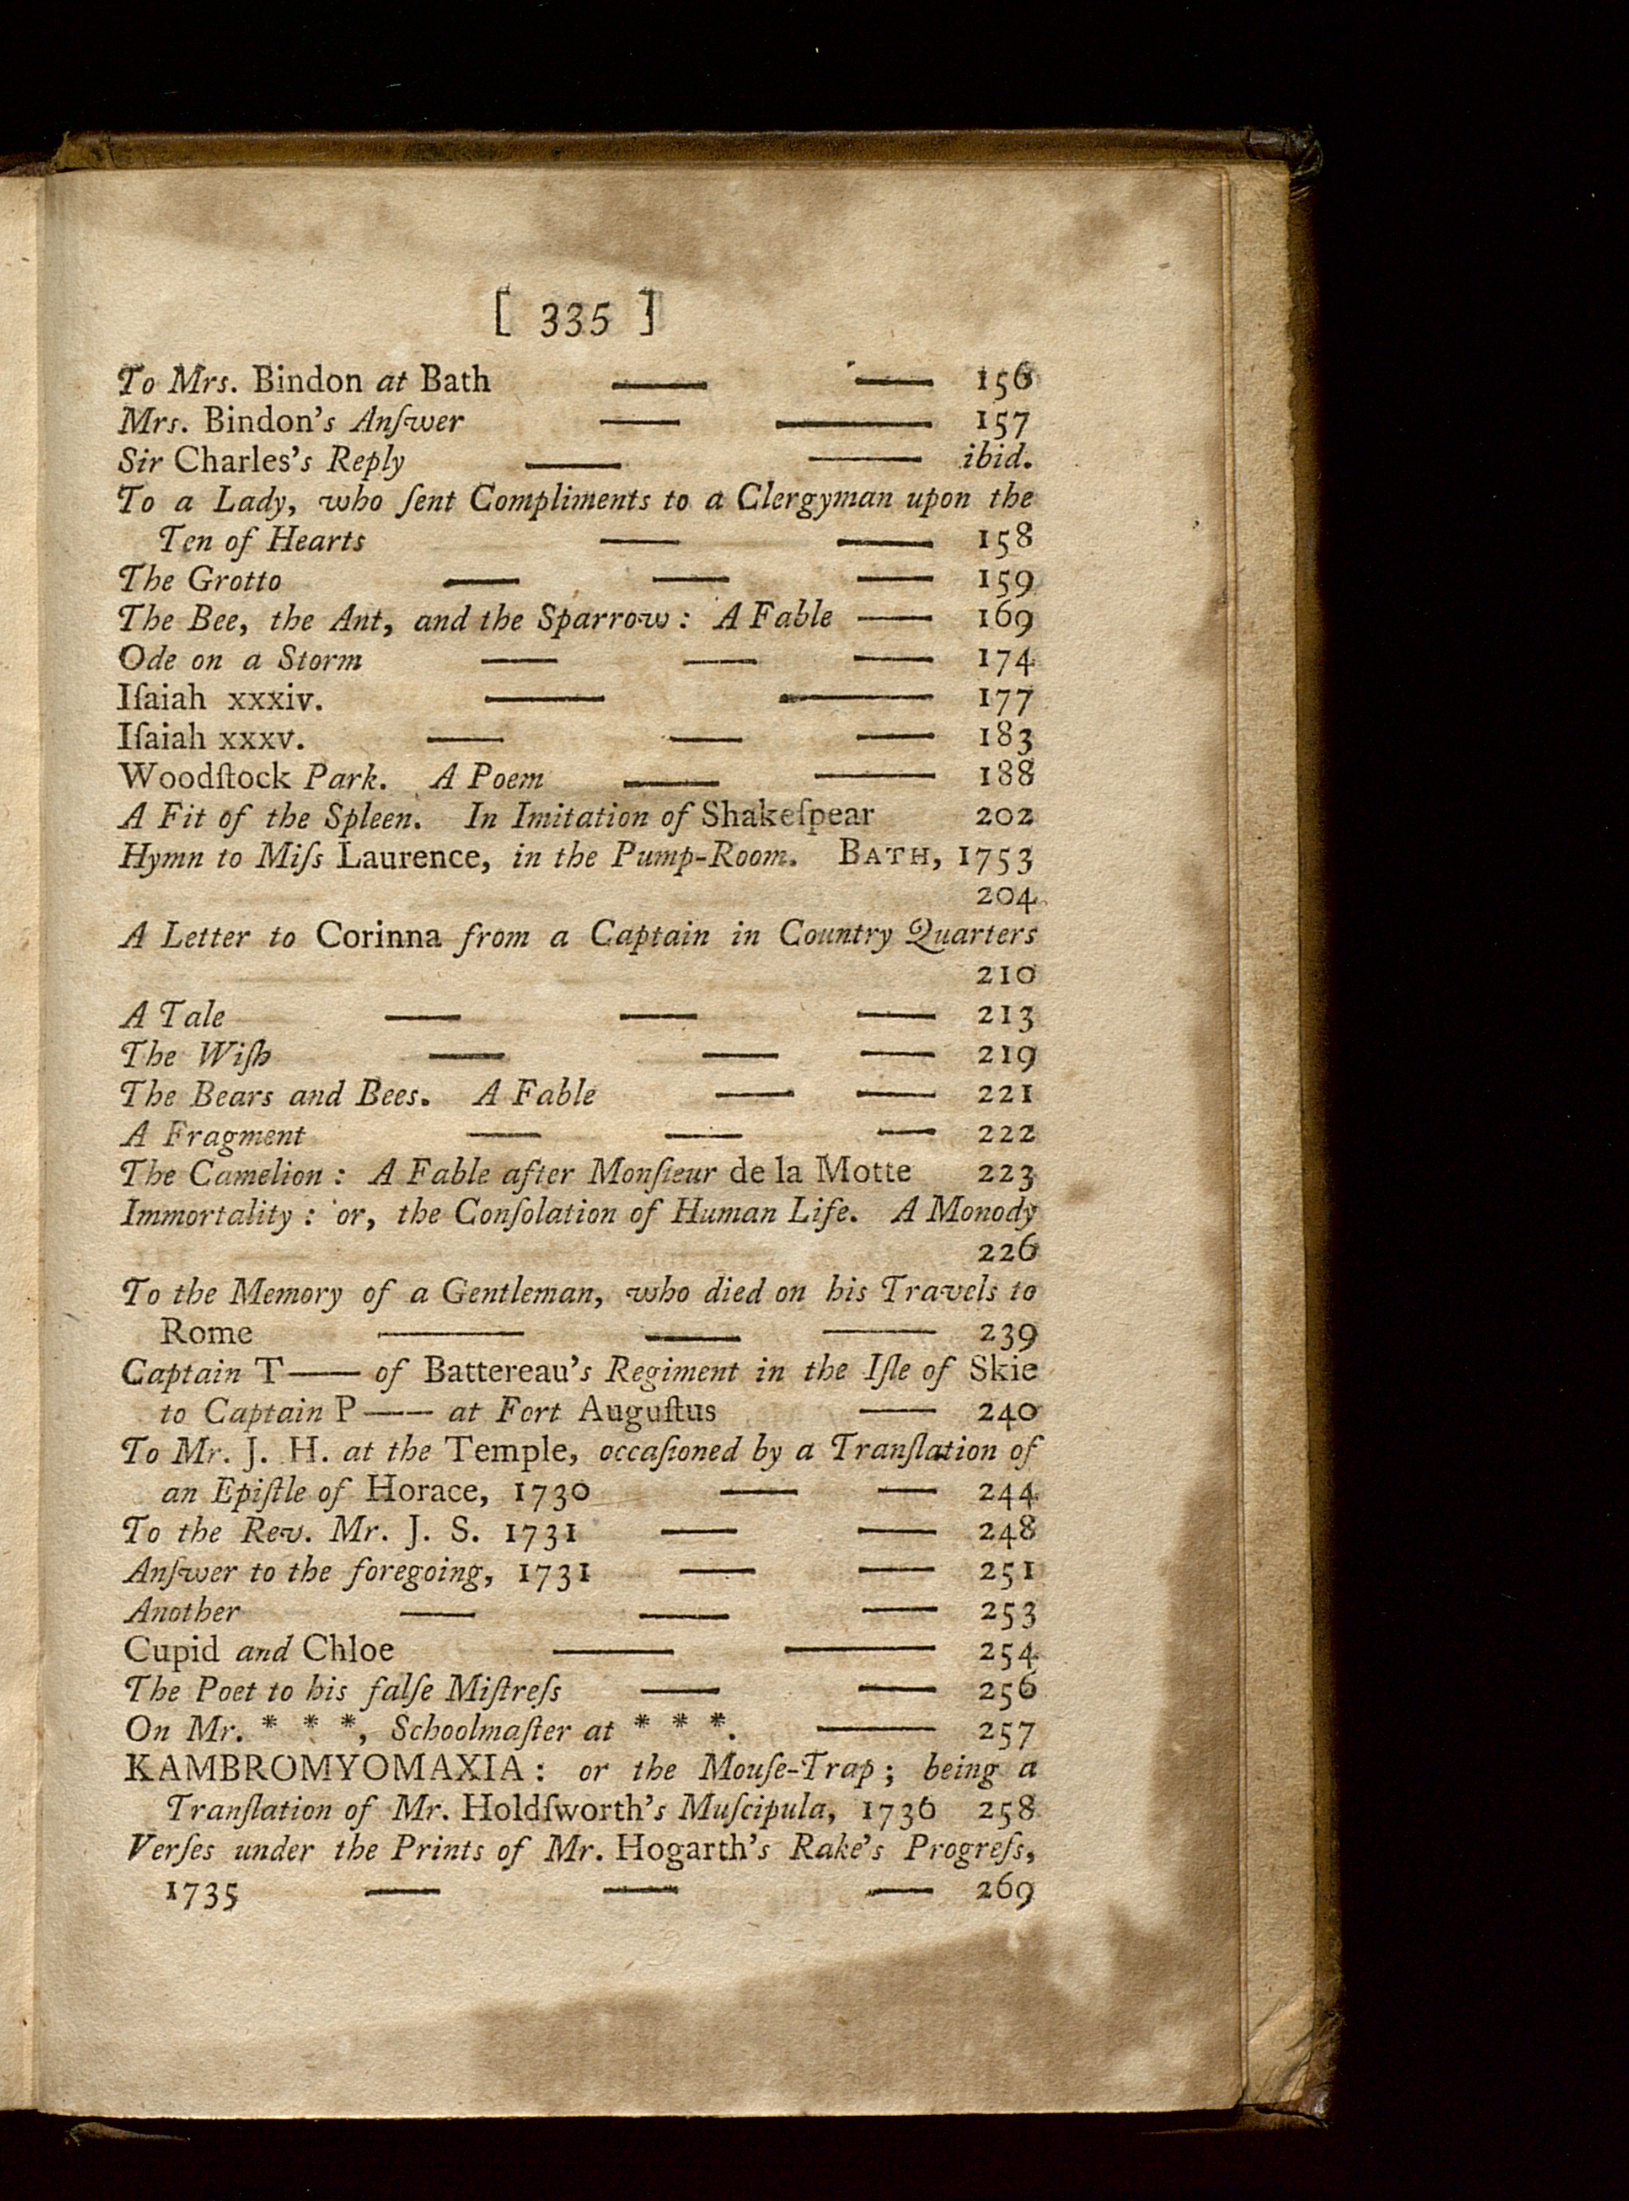 [ 335 ]
To Mrs. Bindon at Bath —— —— 156
Mrs. Bindon's Anſwer —— —— 157
Sir Charles's Reply —— —— ibid.
To a Lady, who ſent Compliments to a Clergyman upon the
Ten of Hearts —— —— 158
The Grotto —— —— —— 159
The Bee, the Ant, and the Sparrow: A Fable —— 169
Ode on a Storm —— —— —— 174
Iſaiah xxxiv. —— —— 177
Iſaiah xxxv. —— —— —— 183
Woodſtock Park. A Poem —— —— 188
A Fit of the Spleen. In Imitation of Shakeſpear 202
Hymn to Miſs Laurence, in the Pump-Room. BATH, 1753
204
A Letter to Corinna from a Captain in Country Quarters
210
A Tale —— —— —— 213
The Wiſh —— —— —— 219
The Bears and Bees. A Fable —— —— 221
A Fragment —— —— —— 222
The Camelion: A Fable after Monſieur de la Motte 223
Immortality: or, the Conſolation of Human Life. A Monody
226
To the Memory of a Gentleman, who died on his Travels to
Rome —— —— —— 239
Captain T—— of Battereau's Regiment in the Iſle of Skie
to Captain P—— at Fort Auguſtus —— 240
To Mr. J. H. at the Temple, occaſioned by a Tranſlation of
an Epiſtle of Horace, 1730 —— —— 244
To the Rev. Mr. J. S. 1731 —— —— 248
Anſwer to the foregoing, 1731 —— —— 251
Another —— —— —— 253
Cupid and Chloe —— —— 254
The Poet to his falſe Miſtreſs —— —— 256
On Mr. * * *, Schoolmaſter at * * *. —— 257
KAMBROMYOMAXIA: or the Mouſe-Trap; being a
Tranſlation of Mr. Holdſworth's Muſcipula, 1736 258
Verſes under the Prints of Mr. Hogarth's Rake's Progreſs,
1735 —— —— —— 269